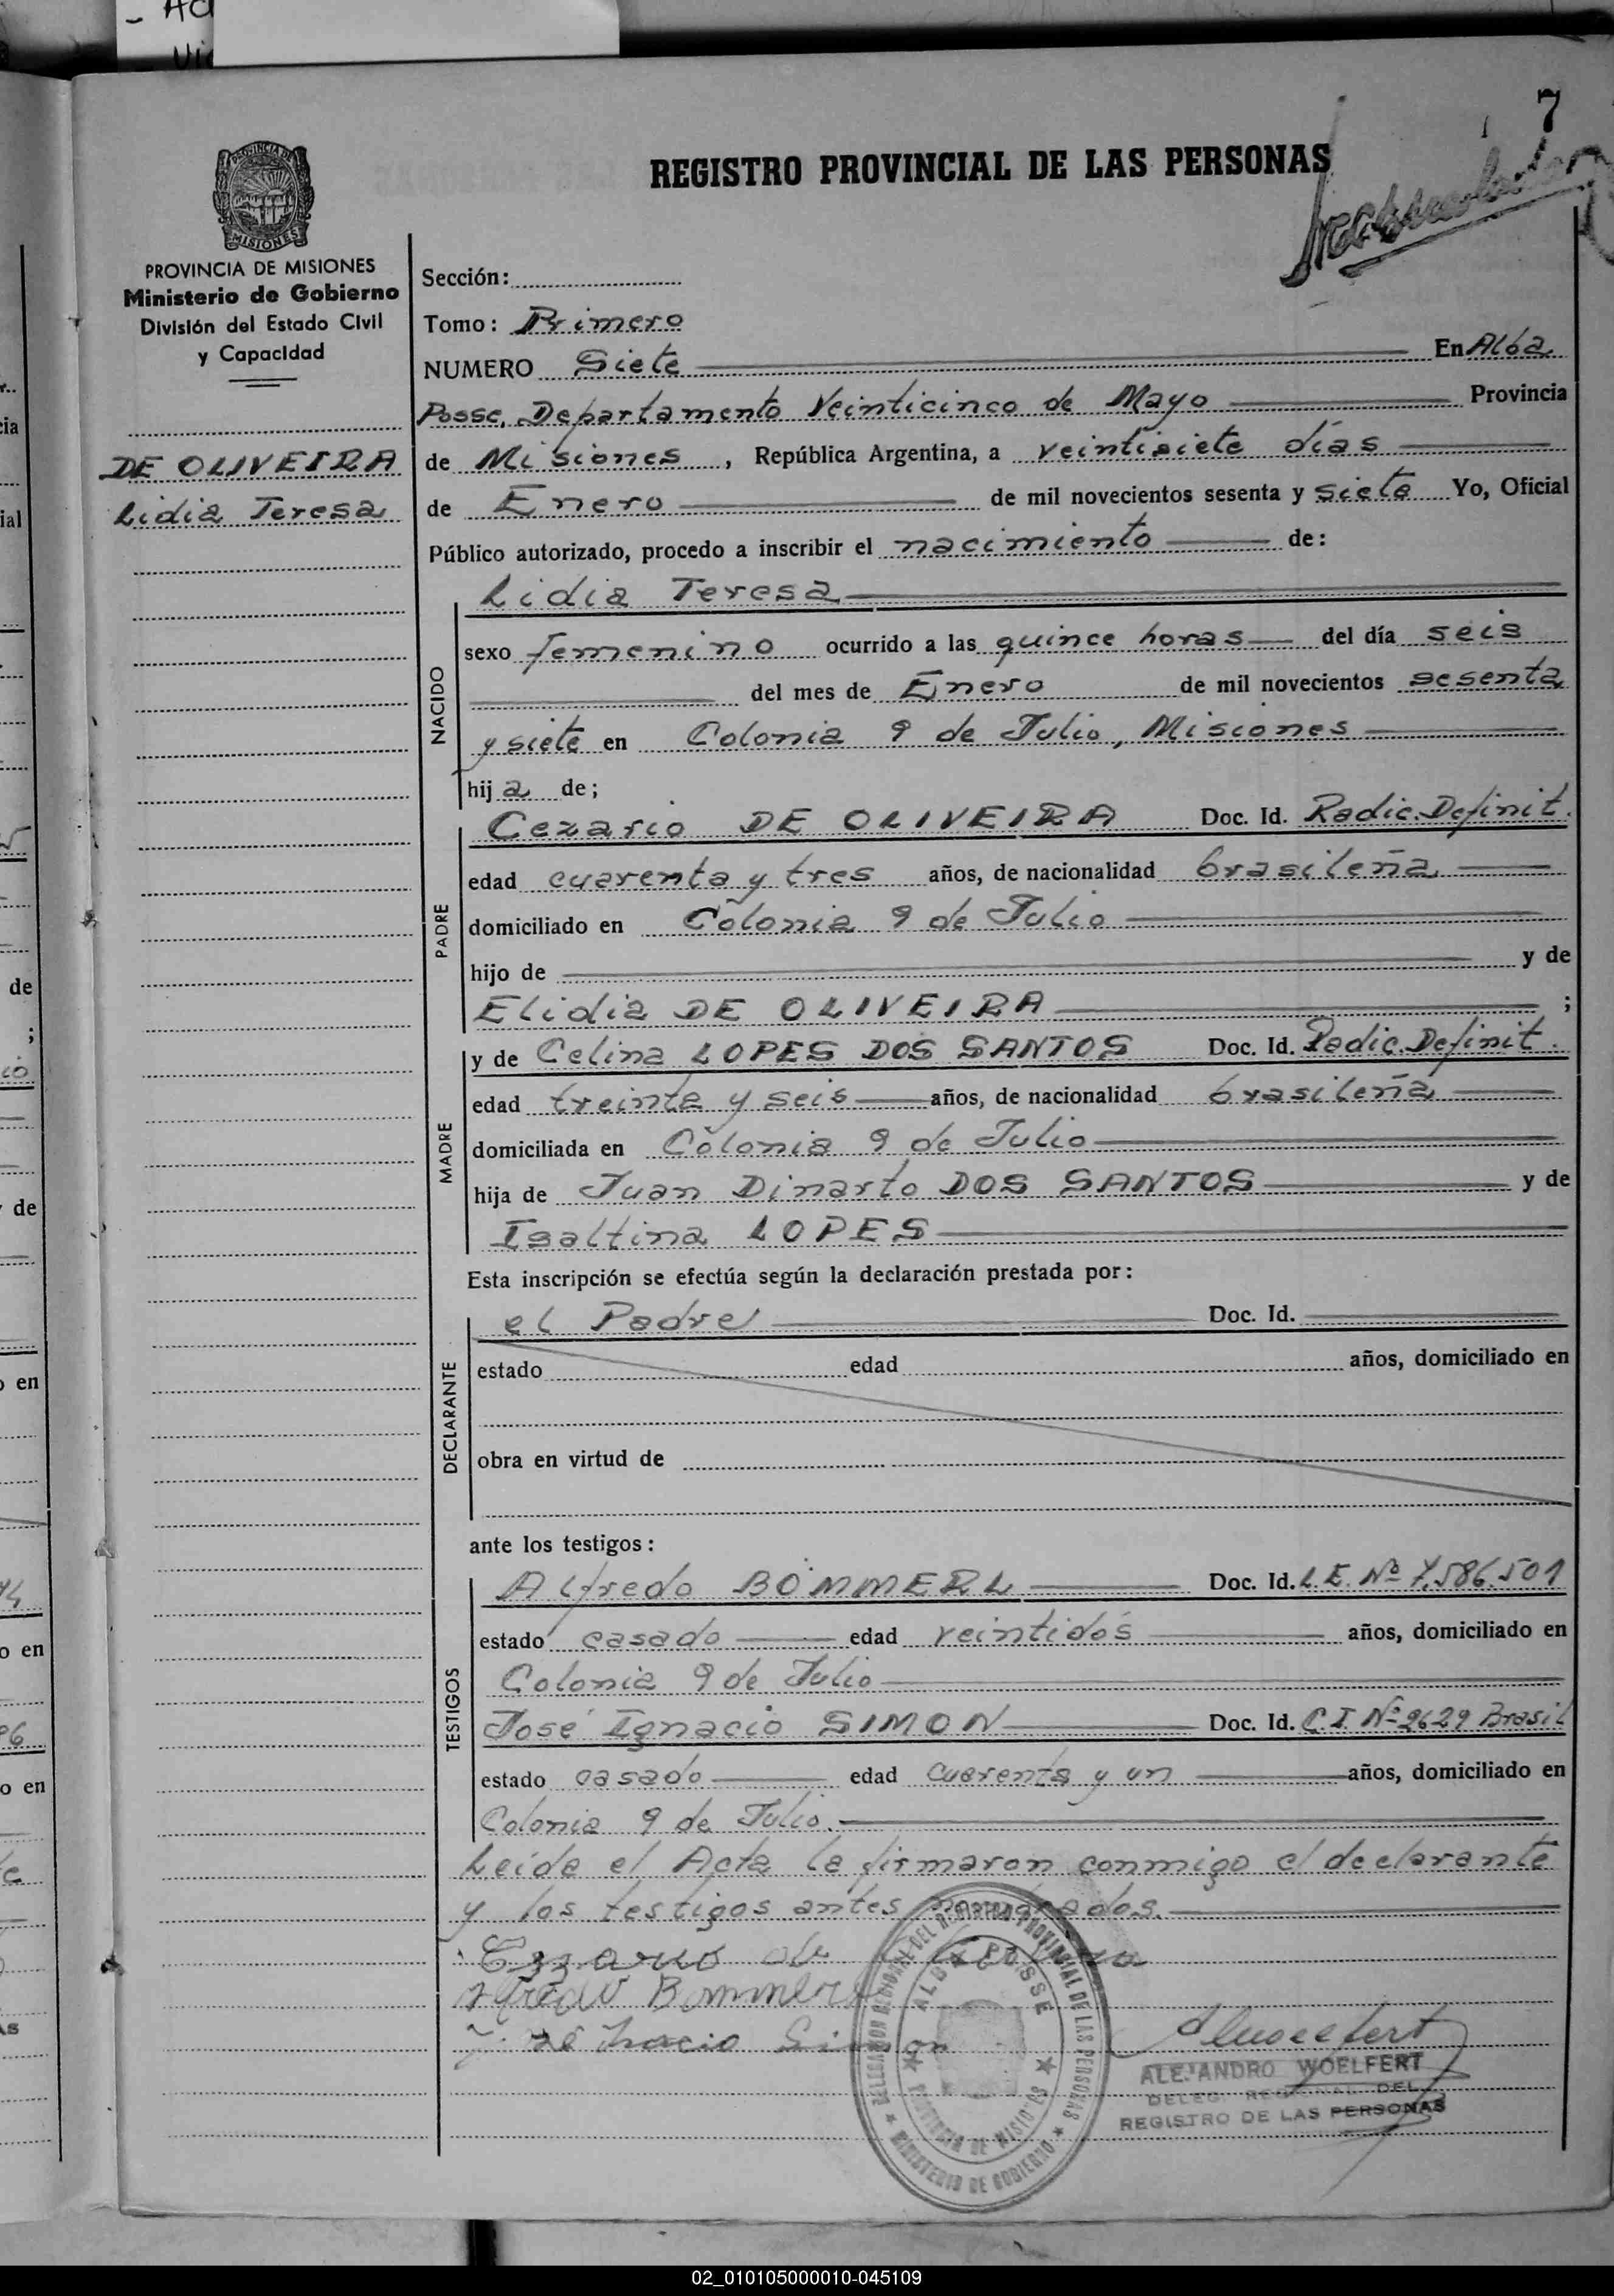 7
REGISTRO PROVINCIAL DE LAS PERSONAS
PROVINCIA DE
MISIONES
PROVINCIA DE MISIONES
Ministerio de Gobierno
División del Estado Civil
y Capacidad
DE OLIVEIRA
Lidia Teresa
Sección:
Tomo: Primero
NUMERO Siete En Alba
Posse, Departamento Veinticinco de Mayo Provincia
de Misiones, República Argentina, a veintisiete días
de Enero de mil novecientos sesenta y siete Yo, Oficial
Público autorizado, procedo a inscribir el nacimiento de:
Lidia Teresa
NACIDO
sexo femenino ocurrido a las quince horas del día seis
del mes de Enero de mil novecientos sesenta
y siete en Colonia 9 de Julio, Misiones
hija de;
PADRE
Cezario DE OLIVEIRA Doc. Id. Radic. Definit.
edad cuarenta y tres años, de nacionalidad brasileña
domiciliado en Colonia 9 de Julio
hijo de y de
Elidia DE OLIVEIRA ;
MADRE
y de Celina LOPES DOS SANTOS Doc. Id. Radic. Definit.
edad treinta y seis años, de nacionalidad brasileña
domiciliada en Colonia 9 de Julio
hija de Juan Dinarto DOS SANTOS y de
Isaltina LOPES
Esta inscripción se efectúa según la declaración prestada por:
DECLARANTE
el Padre Doc. Id.
estado edad años, domiciliado en
obra en virtud de
ante los testigos:
TESTIGOS
Alfredo BOMMERL Doc. Id. L.E. Nº 7.586.501
estado casado edad veintidós años, domiciliado en
Colonia 9 de Julio
José Ignacio SIMON Doc. Id. C.I. Nº 2629 Brasil
estado casado edad cuarenta y un años, domiciliado en
Colonia 9 de Julio.
Leída el Acta la firmaron conmigo el declarante
y los testigos antes nombrados.
Alfredo Bommerl
ALEJANDRO WOELFERT
DELEG. REGIONAL DEL
REGISTRO DE LAS PERSONAS
DELEGACION REGIONAL DEL REGISTRO PROVINCIAL DE LAS PERSONAS
ALBA POSSE
PROVINCIA DE MISIONES
MINISTERIO DE GOBIERNO
02_010105000010-045109